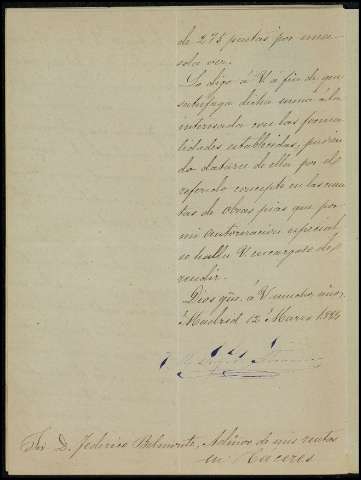 de 275 pesetas por una
sola vez.
Lo digo á V. á fin de que
satisfaga dicha suma á la
interesada con las forma
lidades establecidas, pudien
do datarse de ella por el
referido concepto en las cuen
tas de obras pias que por
mi autorizacion especial
se halla V. encargado de
rendir.
Dios güe. á V. muchos años.
Madrid 12 Marzo 1884
Sr. D. Federico Belmonte, Admor. de mis rentas
en Cáceres